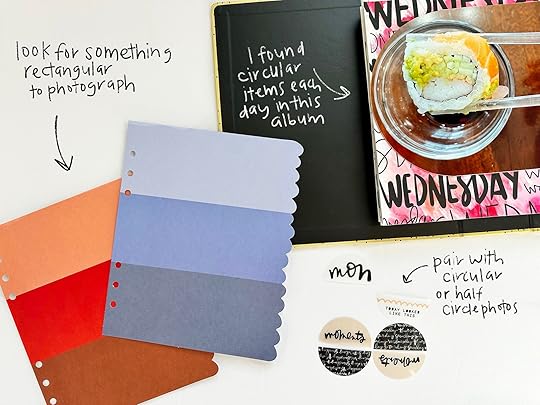 look for something
rectangular
to photograph
I found
circular
items each
day in this
album
WEDNESDAY
WEDNESDAY
pair with
circular
or half
circle photos
mon
TODAY LOOKED
LIKE THIS
moments
moments